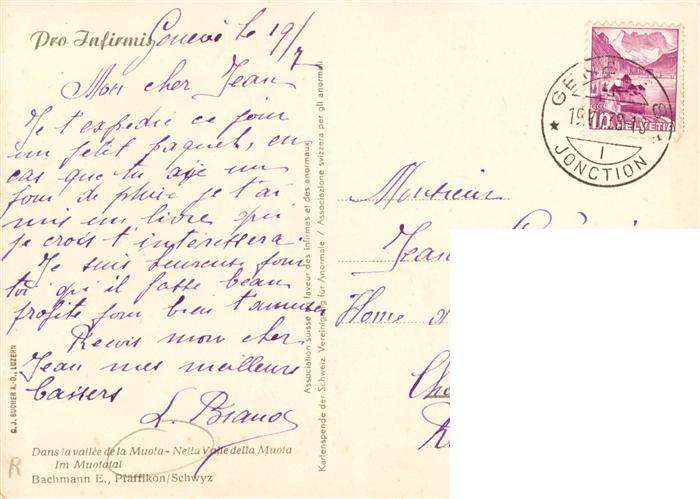 Pro Infirmis
Genève le 19/7
Mon cher Jean
Je t'expédie ce jour
un petit paquet, en
cas que tu aye un
jour de pluie je t'ai
mis un livre qui
je crois t'intéressera
Je suis heureuse pour
toi qu'il fasse beau
profite pour bien t'amuser
Reçois mon cher
Jean mes meilleurs
baisers
L. Brand
Dans la vallée de la Muota - Nella Valle della Muota
Im Muotatal
Bachmann E., Pfäffikon/Schwyz
R
G. J. BUCHER A.-G., LUZERN
Association suisse en faveur des infirmes et des anormaux
Kartenspende der Schweiz. Vereinigung für Anormale / Associazione svizzera per gli anormali
10 HELVETIA
JONCTION
Monsieur
Jean
Home